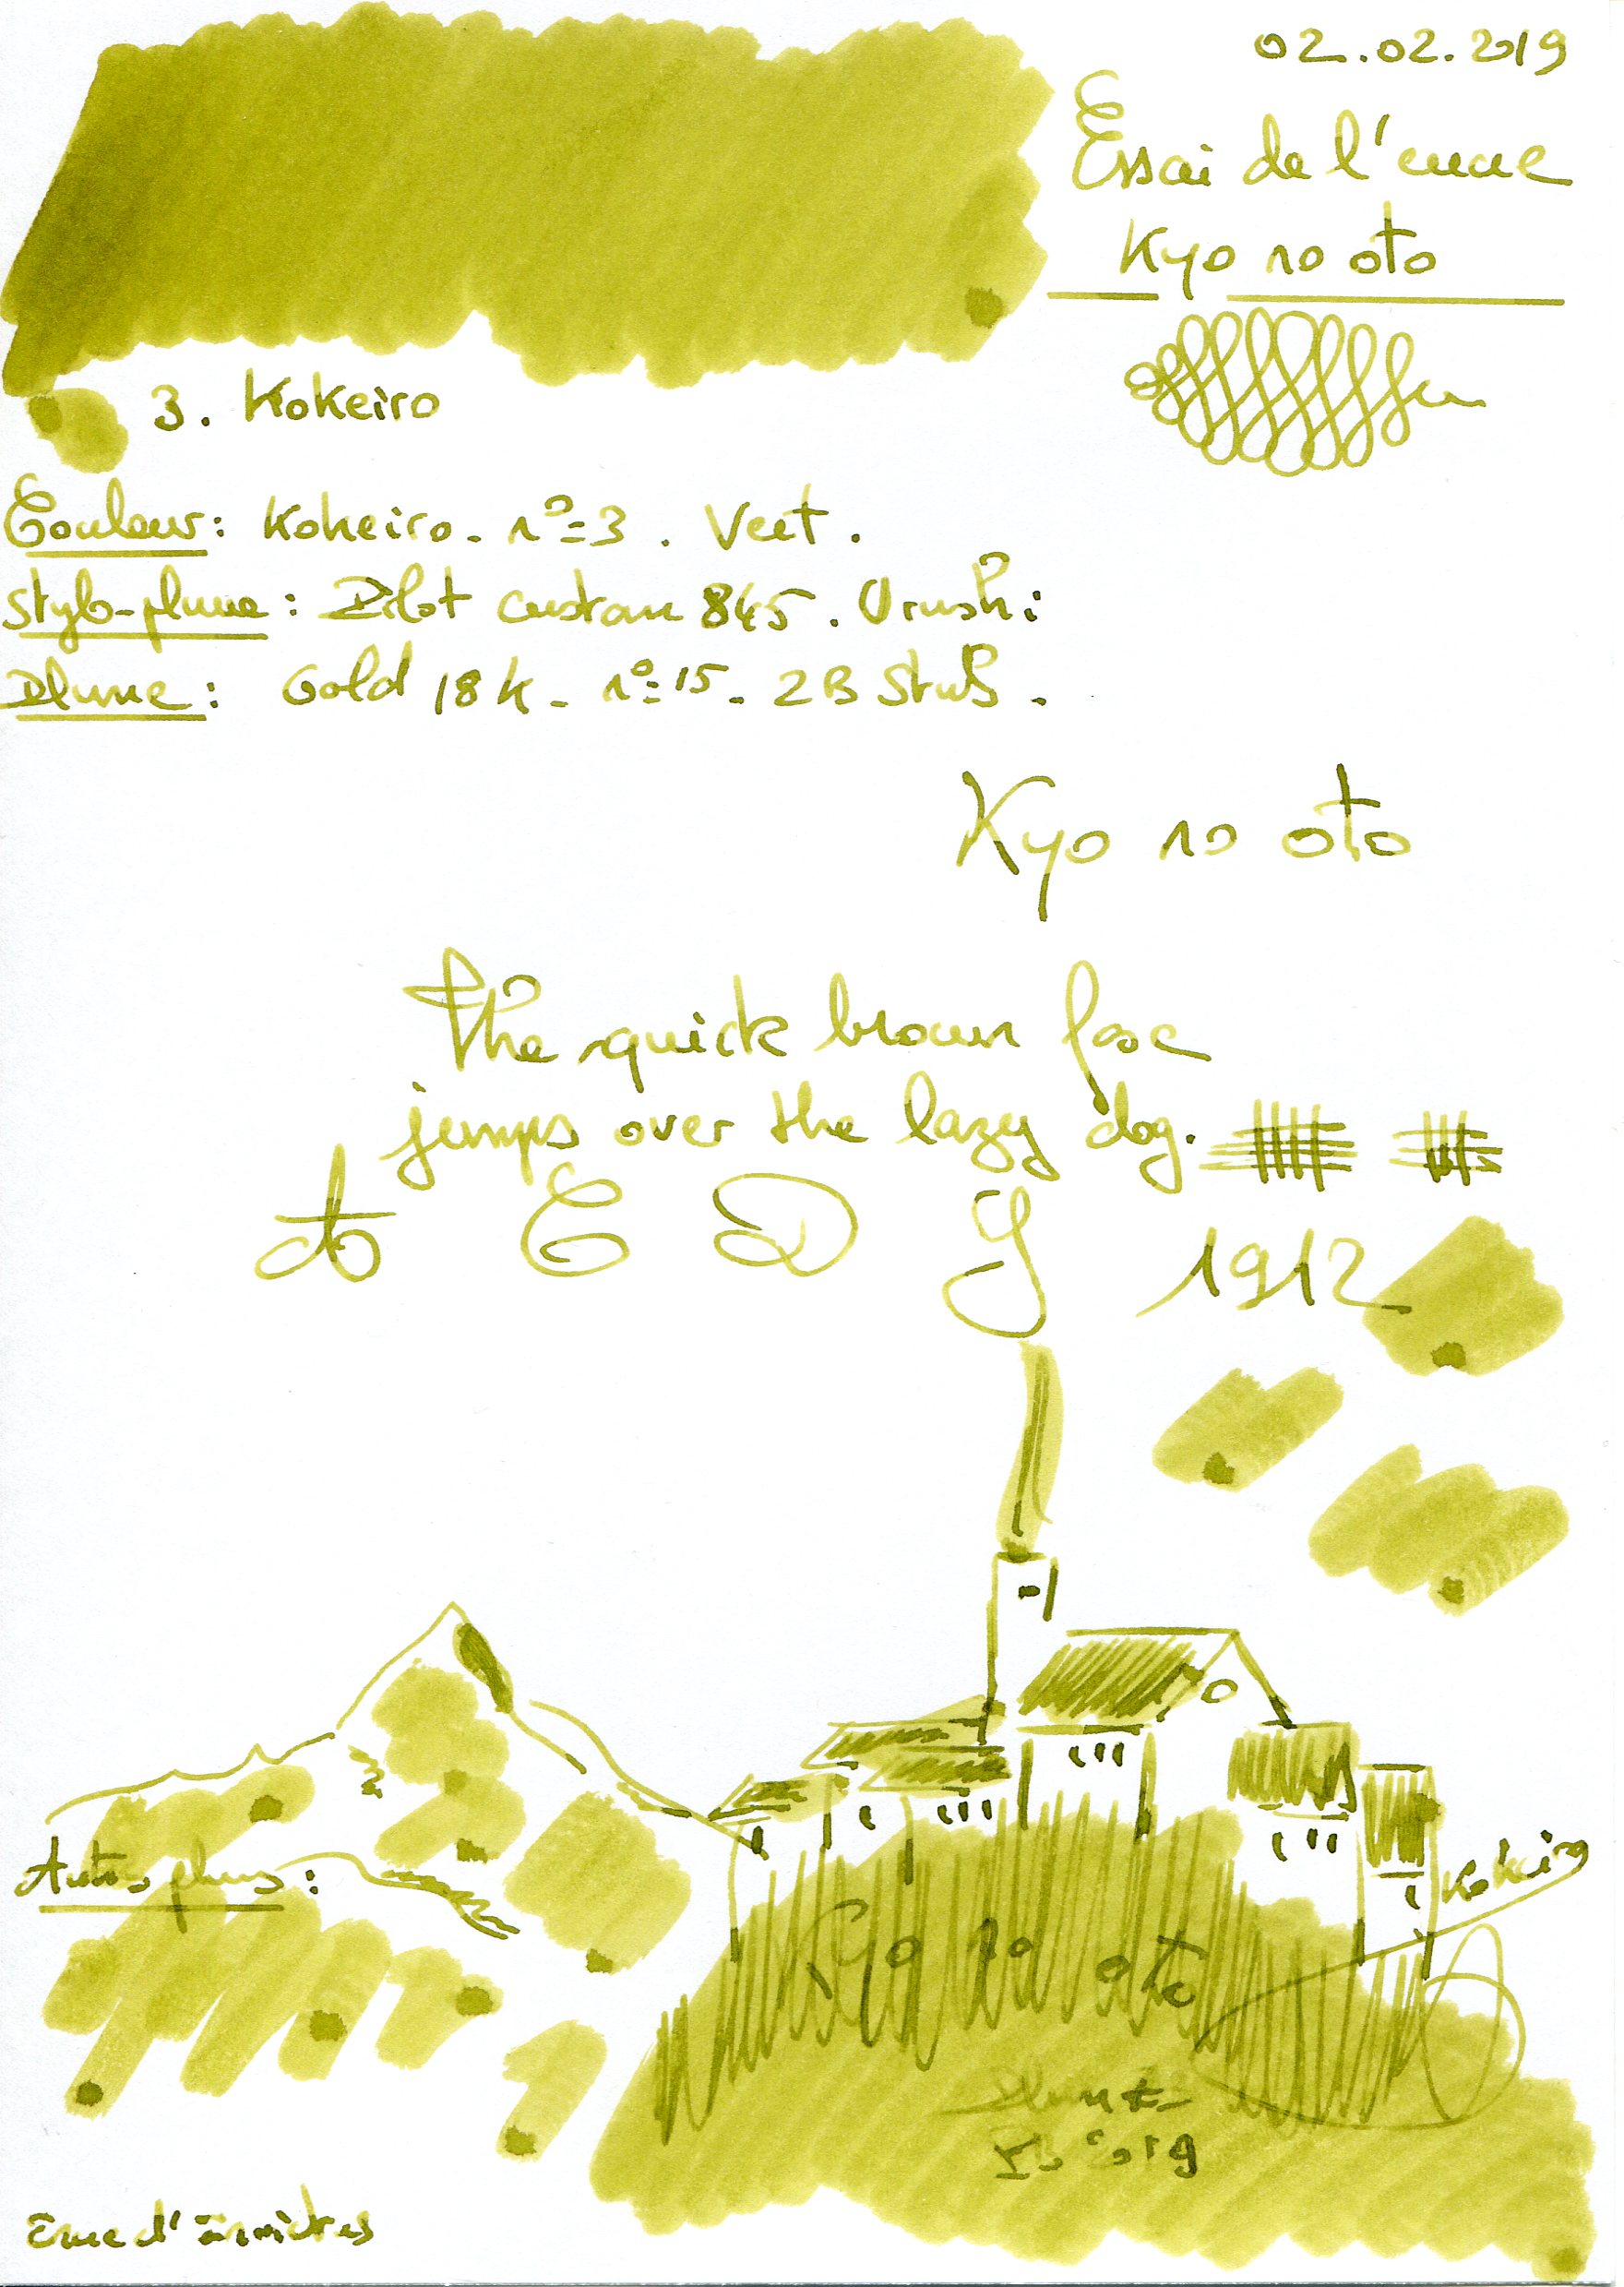 02.02.2019
Essai de l'encre
Kyo no oto
3. Kokeiro
Couleur: Kokeiro. n°=3. Vert.
Stylo-plume: Pilot Custom 845. Urushi
Plume: Gold 18K. n°=15. 2B Stub.
Kyo no oto
The quick brown fox
jumps over the lazy dog.
A C D J 1912
Autres plumes:
Kokeiro
Kyo no oto
2019